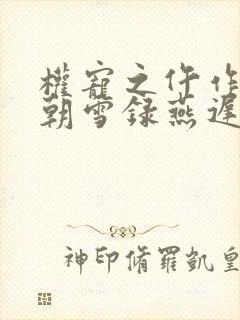 權寵之仵作
朝雪録燕遲
神印脩羅凱皇